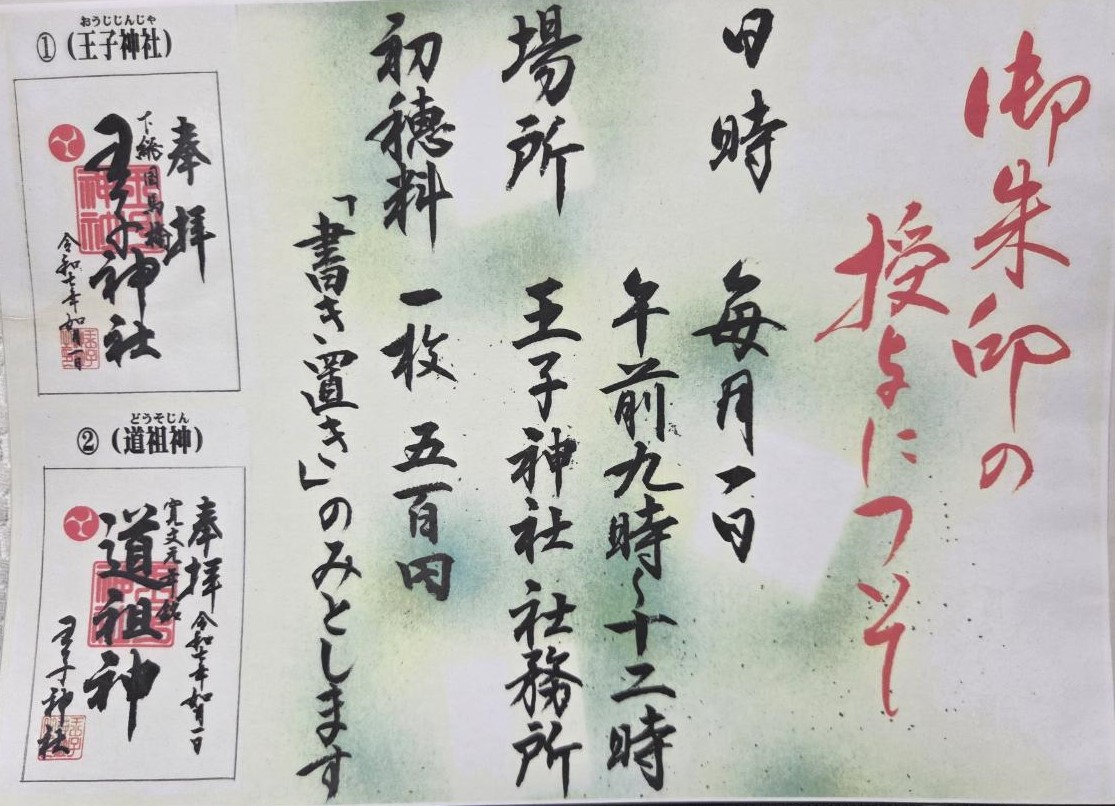 御朱印の
授与について
日時 毎月一日
午前九時~十二時
場所 王子神社社務所
初穂料 一枚 五百円
「書き置き」のみとします
①(王子神社)
おうじじんじゃ
奉拝
下総国馬橋
王子神社
令和七年如月一日
②(道祖神)
どうそじん
奉拝 令和七年如月一日
寛文元年銘
道祖神
王子神社